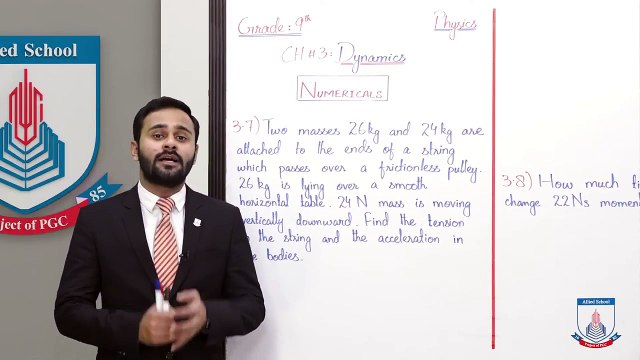 Allied School
85
Project of PGC
Grade: 9th
Physics
CH#3: Dynamics
NUMERICALS
3.7) Two masses 26kg and 24kg are
attached to the ends of a string
which passes over a frictionless pulley.
26kg is lying over a smooth
horizontal table. 24N mass is moving
vertically downward. Find the tension
the string and the acceleration in
bodies.
3.8) How much
change 22Ns
Allied School
Project of PGC